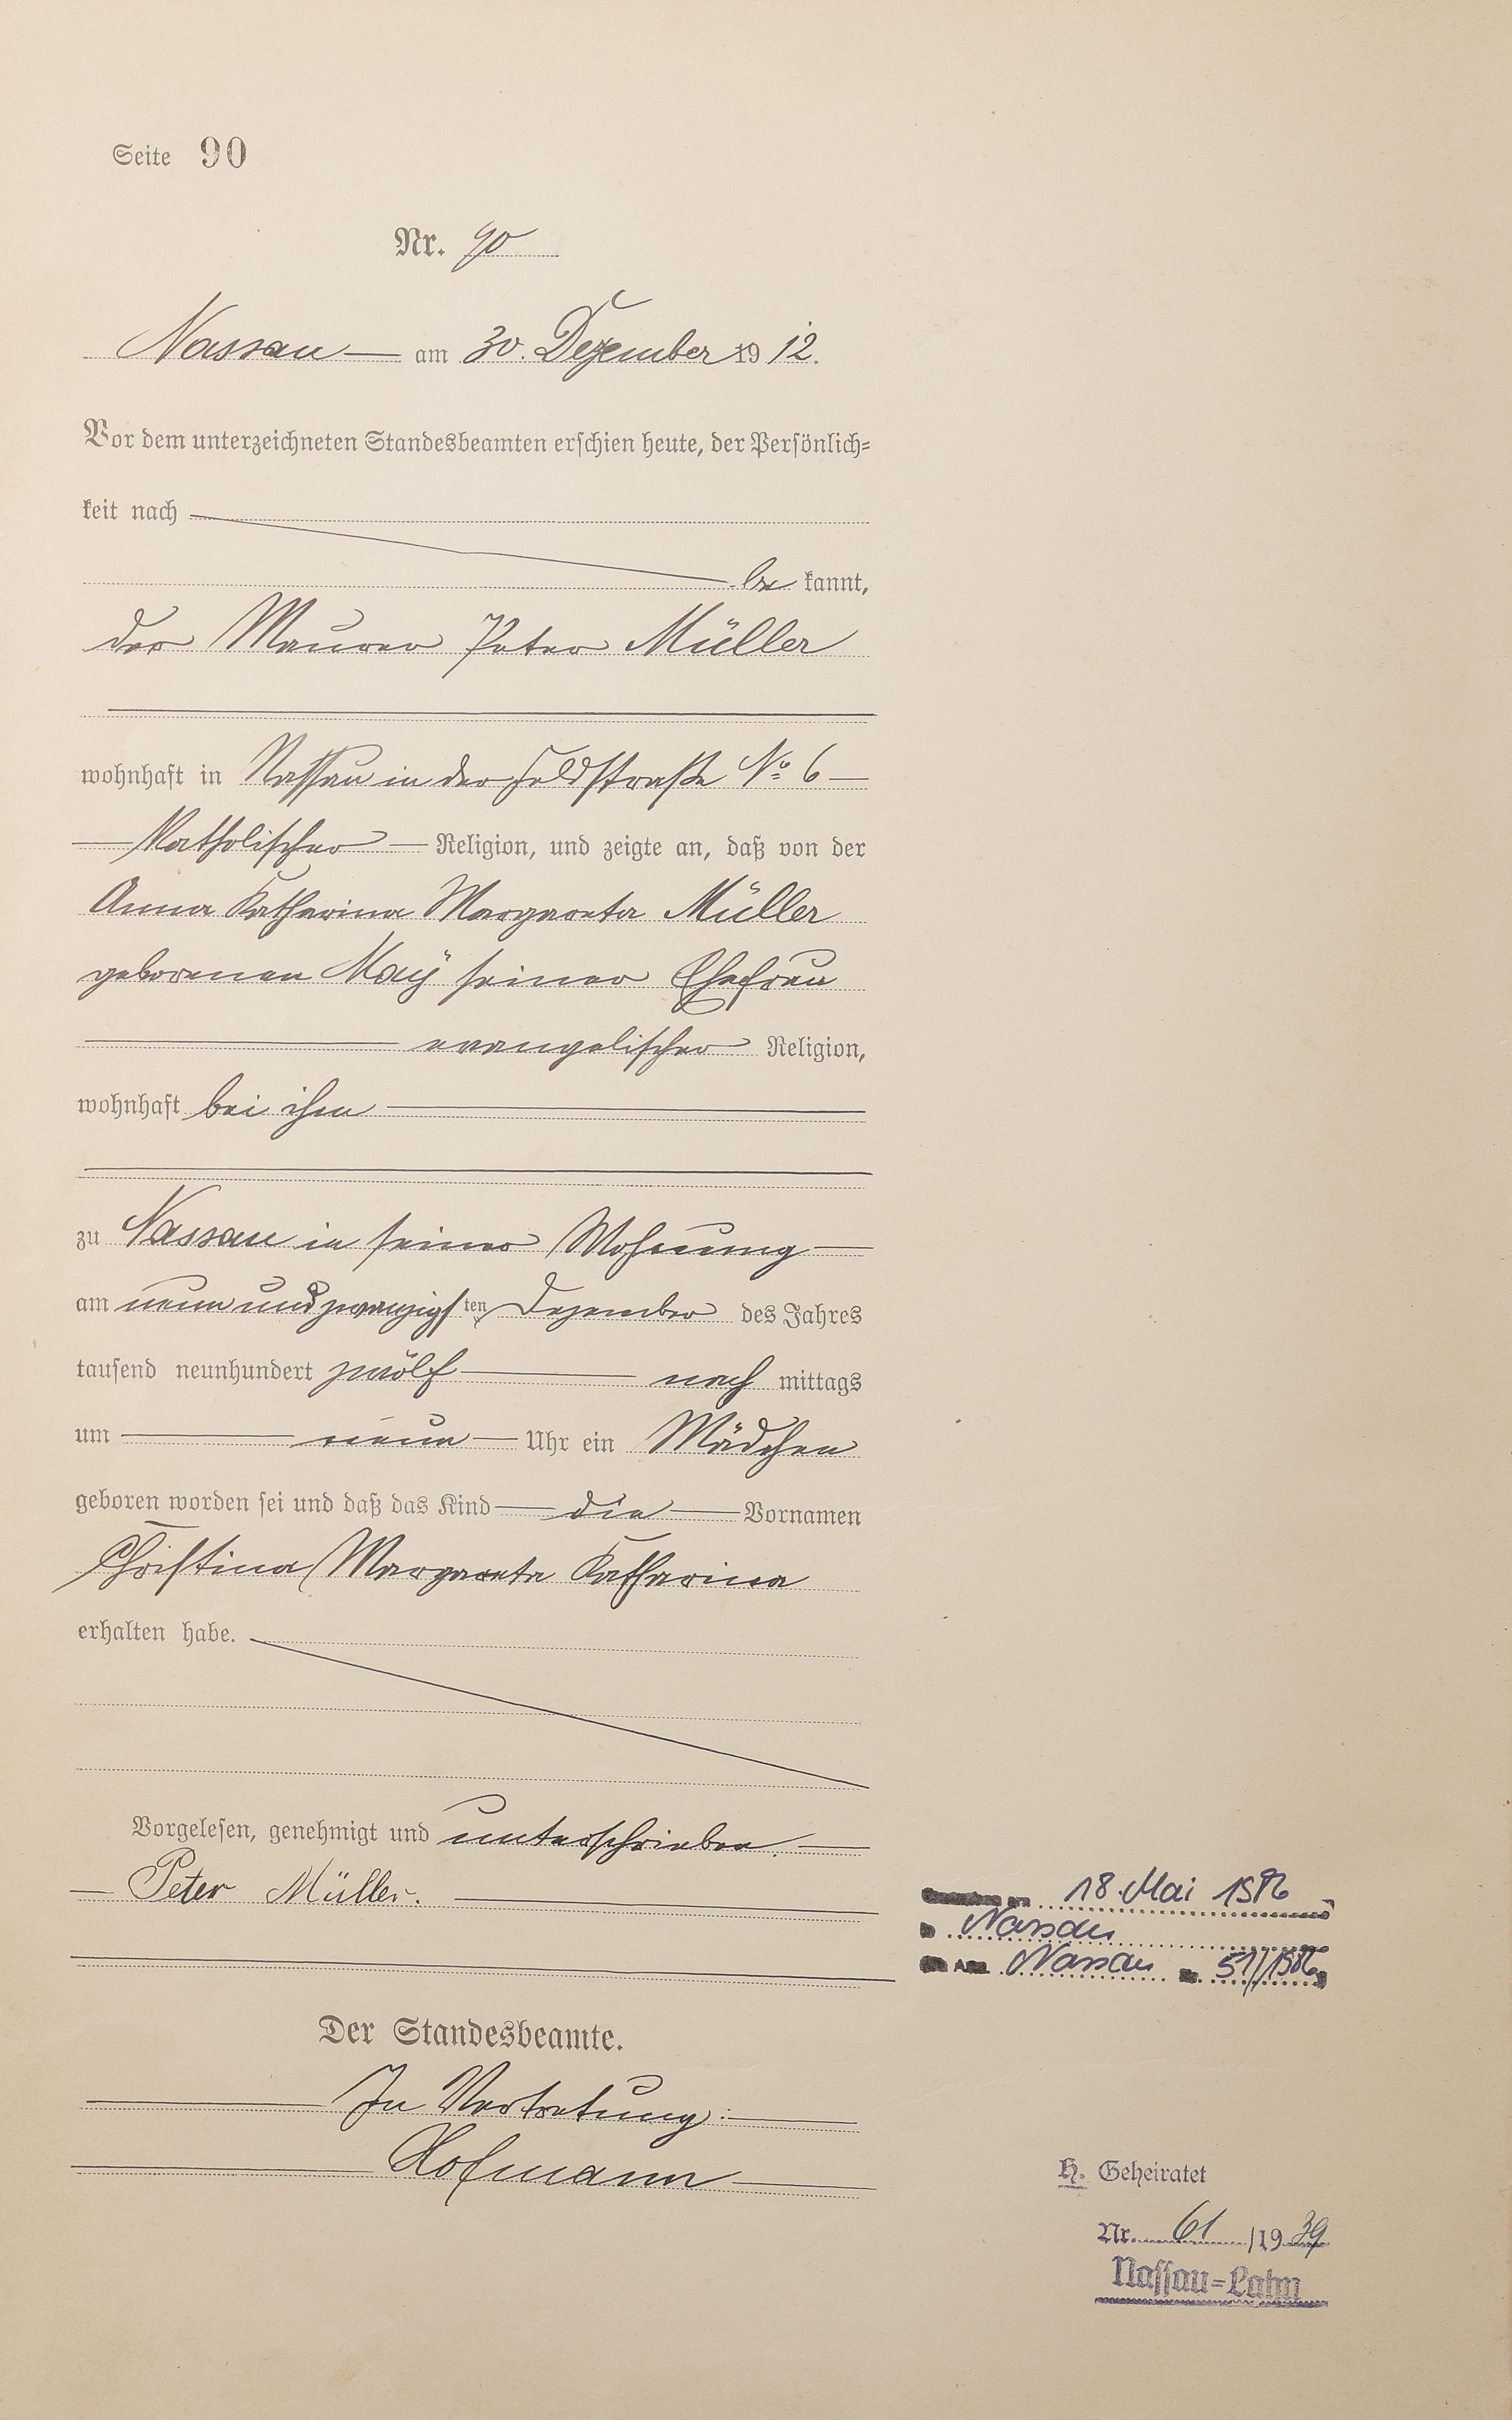 Seite 90
Nr. 90
Nassau — am 30. Dezember 1912.
Vor dem unterzeichneten Standesbeamten erschien heute, der Persönlich=
keit nach
be kannt,
der Maurer Peter Müller
wohnhaft in Nassau in der Feldstraße No 6 —
— Katholischer — Religion, und zeigte an, daß von der
Anna Katharina Margareta Müller
geborenen May seiner Ehefrau
— evangelischer Religion,
wohnhaft bei ihm —
zu Nassau in seiner Wohnung —
am neun und zwanzigsten Dezember des Jahres
tausend neunhundert zwölf — nach mittags
um — neun — Uhr ein Mädchen
geboren worden sei und daß das Kind — die — Vornamen
Christina Margareta Katharina
erhalten habe.
Vorgelesen, genehmigt und unterschrieben. —
— Peter Müller. —
Der Standesbeamte.
— In Vertretung: —
— Hofmann —
18. Mai 1986
Nassau
Nassau 51/1986
H. Geheiratet
Nr. 61 /19 39
Nassau=Lahn